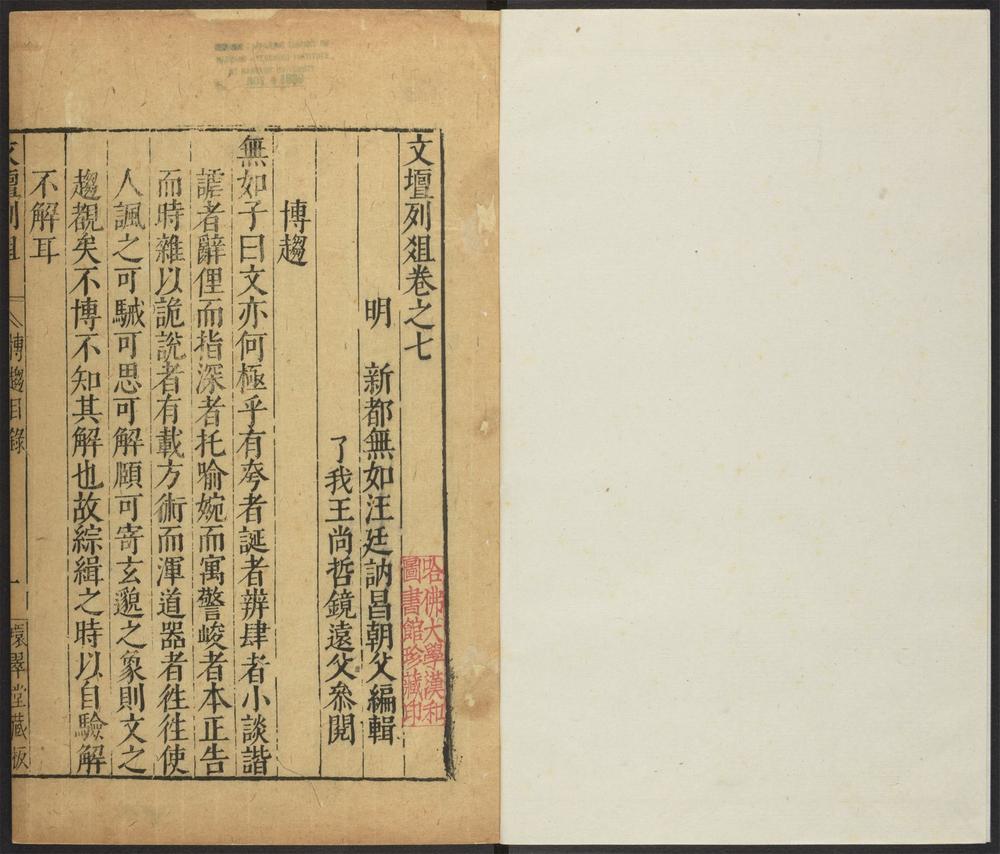 文壇列爼卷之七
明　新都無如汪廷訥昌朝父編輯
了我王尚哲鏡遠父叅閱
博趨
無如子曰文亦何極乎有夸者誕者辨肆者小談諧
謔者辭俚而指深者托喻婉而寓警峻者本正告
而時雜以詭說者有載方術而渾道器者徃徃使
人諷之可駴可思可解頤可寄玄邈之象則文之
趨覩矣不博不知其解也故綜緝之時以自驗解
不解耳
文壇列爼　博趨目錄　一　環翠堂藏板
哈佛大學漢和
圖書館珍藏印